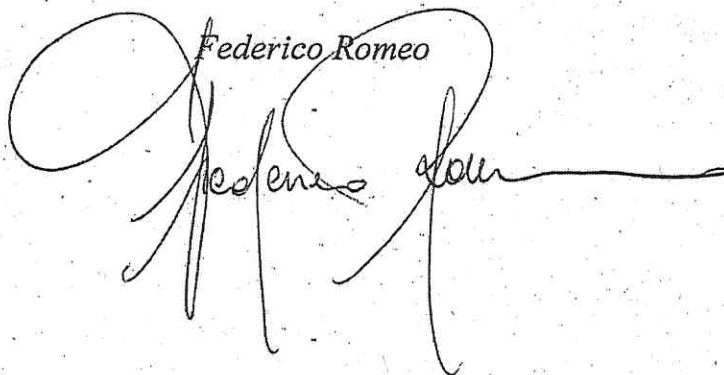 Federico Romeo
Federico Rom